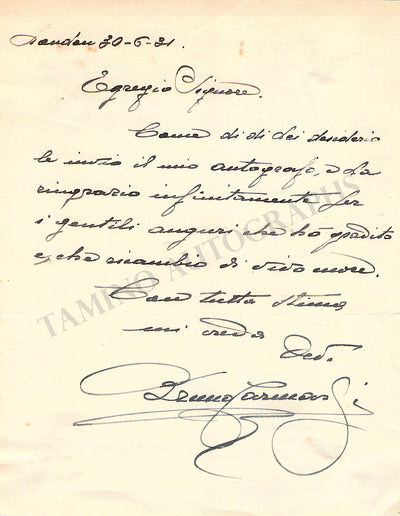 London 30-6-31.
Egregio Signore.
Come di di Lei desiderio
le invio il mio autografo, e La
ringrazio infinitamente per
i gentili auguri che ho gradito
e, che ricambio di vivo cuore.
Con tutta stima
mi creda
Dev.
TAMINO AUTOGRAPHS